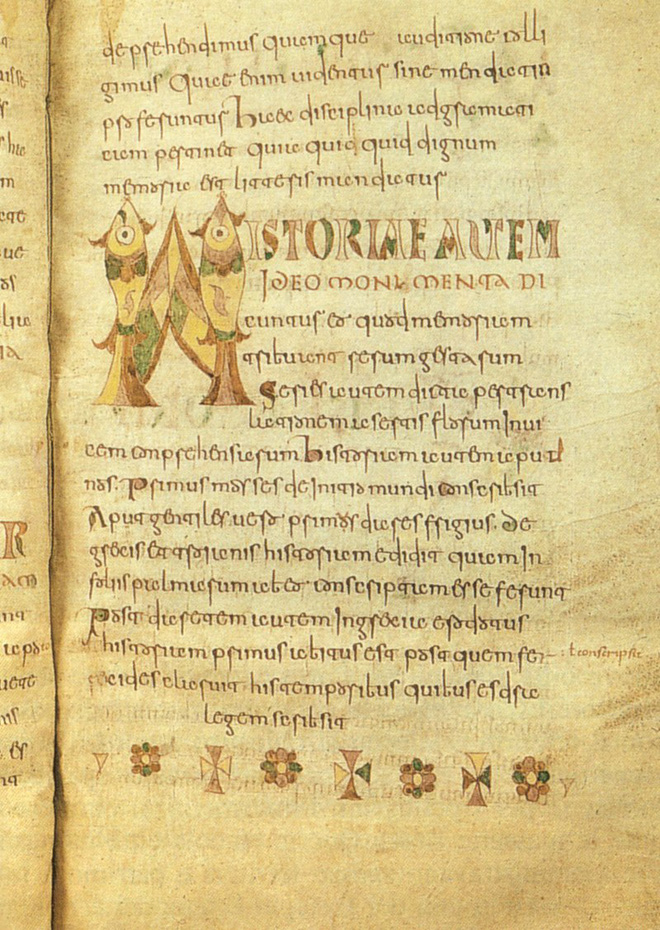 deprehendimus quamque auditione colli
gimus Quae enim uidentur sine mendatio
proferuntur Haec disciplina ad gramati
cam pertinet quia quid quid dignum
memoriae est litteris mandatur
HISTORIAE AUTEM
IDEO MONIMENTA DI
cuntur eo quod memoriam
tribuant rerum gestarum
Series autem dicta per trans
lationem a sertis florum Inui
cem conprehensarum Historiam autem aput
nos. Primus mosses de Initio mundi conscribsit
Aput gentiles. uero primus dares ffrigius. De
grecis et troianis historiam edidit quam In
foliis palmarum ab eo conscriptam esse ferunt
Post daretem autem In grecia erodotus
historiam primus abitus est post quem fe
recides claruit his temporibus quibus esdras
legem scribsit
ł conscripsit